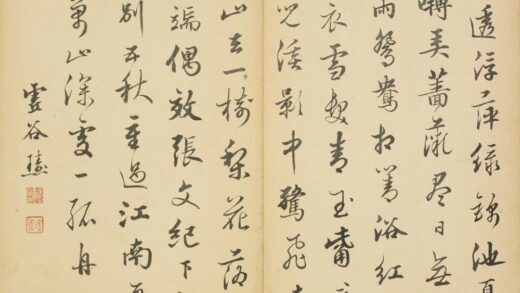 透浮萍綠錦池夏
囀弄薔薇盡日無
雨鴛鴦相對浴紅
衣雪髮青玉觜
兒溪影中驚飛遠
山去一樹梨花落
端偶效張文紀下
別五秋重過江南更
萬山深處一孤舟
雲谷